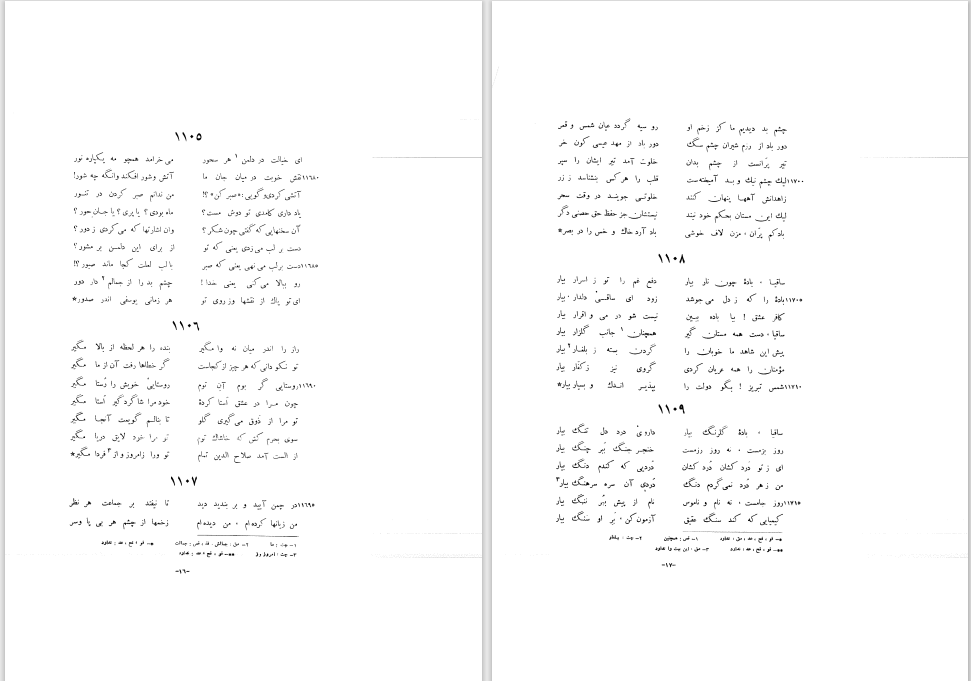 ۱۱۰۵
ای خیالت در دلمن ۱ هر سحور می خرامد همچو مه یکپاره نور
۱۱۶۸۰نقش خوبت در میان جان ما آتش و شور افکند وانگه چه شور!
آتشی کردی و گویی: «صبر کن»؟! من ندانم صبر کردن در تنور
یاد داری کامدی تو دوش مست؟ ماه بودی؟ یا پری؟ یا جان حور؟
آن سخنهایی که گفتی چون شکر؟ وان اشارتها که می کردی ز دور؟
دست بر لب می زدی یعنی که تو از برای این دلمن بر مشور؟
۱۱۶۸۵دست برلب می نهی یعنی که صبر با لب لعلت کجا ماند صبور؟!
رو ببالا می کنی یعنی خدا! چشم بد را از جمالم ۲ دار دور
ای تو پاک از نقشها وز روی تو هر زمانی یوسفی اندر صدور*
۱۱۰۶
راز را اندر میان نه وا مگیر بنده را هر لحظه از بالا مگیر
تو نکو دانی که هر چیز از کجاست گر خطاها رفت آن از ما مگیر
۱۱۶۹۰روستایی گر بوم آن توم روستایی خویش را رُستا مگیر
چون مرا در عشق اُستا کردۀ خود مرا شاگردگیر اُستا مگیر
تو مرا از ذوق می گیری گلو تا بنالم گویمت آنجا مگیر
سوی بحرم کش که خاشاک توم تو مرا خود لایق دریا مگیر
از الست آمد صلاح الدین تمام تو ورا زامروز و از ۳ فردا مگیر*
۱۱۰۷
۱۱۶۹۵در چمن آیید و بر بندید دید تا نیفتد بر جماعت هر نظر
من زیانها کرده‌ام، من دیده‌ام زخمها از چشم هر بی پا و سر
*- قو، قح، عد: ندارد
۱- چت: ما
**- قو، قح، عد: ندارد
-۱۶-
چشم بد دیدیم ما کز زخم او رو سیه گردد عیان شمس و قمر
دور باد از رزم شیران چشم سگ دور باد از مهد عیسی کون خر
تیر پرّانست از چشم بدان خلوت آمد تیر ایشان را سپر
۱۱۷۰۰لیک چشم نیک و بد آمیخته‌ست قلب را هرکس بنشناسد ز زر
زاهدانش آهها پنهان کنند خلوتی جویند در وقت سحر
لیک این مستان بحکم خود نیند نیستشان جز حفظ حق حصنی دگر
باد کم پرّان، مزن لاف خوشی باد آرد خاک و خس را در بصر*
۱۱۰۸
ساقیا، بادۀ چون نار بیار دفع غم را تو ز اسرار بیار
۱۱۷۰۵بادۀ را که ز دل می جوشد زود ای ساقی دلدار، بیار
کافر عشق! بیا باده ببین نیست شو در می و اقرار بیار
ساقیا، دست همه مستان گیر همچنان ۱ جانب گلزار بیار
پیش این شاهد ما خوبان را گردن بسته ز بلغار ۲ بیار
مؤمنان را همه عریان کردی گروی نیز ز کفّار بیار
۱۱۷۱۰شمس تبریز! بگو دولت را بپذیر اندک و بسیار بیار*
۱۱۰۹
ساقیا، بادۀ گلرنگ بیار داروی درد دل تنگ بیار
روز بزمست، نه روز رزمست خنجر جنگ ببَر چنگ بیار
ای ز تو دَرد کشان دُرد کشان دُردیی که کندم دنگ بیار
من ز هر دُرد نمی گردم دنگ دُردی آن سره سرهنگ بیار۳
۱۱۷۱۵روز جامست، نه نام و ناموس نام از پیش ببُر ننگ بیار
کیمیایی که کند سنگ عقیق آزمون کن، بَر او سنگ بیار
*- قو، قح، عد، مق: ندارد ۱- فص: همچنین
**- قو، قح، عد: ندارد ۳- مق: این بیت را ندارد
-۱۷-